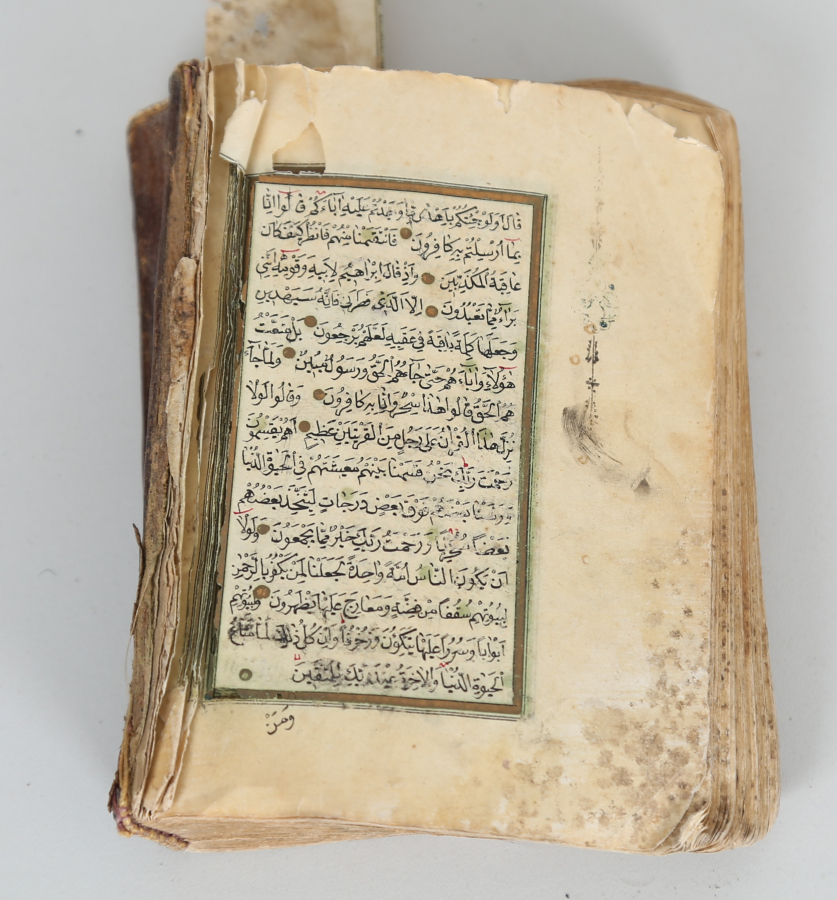 قَالَ اَوَلَوْ جِئْتُكُمْ بِاَهْدٰى مِمَّا وَجَدْتُمْ عَلَيْهِ اٰبَاءَكُمْ قَالُوا اِنَّا
بِمَا اُرْسِلْتُمْ بِهِ كَافِرُونَ فَانْتَقَمْنَا مِنْهُمْ فَانْظُرْ كَيْفَ كَانَ
عَاقِبَةُ الْمُكَذِّبِينَ وَاِذْ قَالَ اِبْرَاهِيمُ لِاَبِيهِ وَقَوْمِهِ اِنَّنِي
بَرَاءٌ مِمَّا تَعْبُدُونَ اِلَّا الَّذِي فَطَرَنِي فَاِنَّهُ سَيَهْدِينِ
وَجَعَلَهَا كَلِمَةً بَاقِيَةً فِي عَقِبِهِ لَعَلَّهُمْ يَرْجِعُونَ بَلْ مَتَّعْتُ
هٰؤُلَاءِ وَاٰبَاءَهُمْ حَتّٰى جَاءَهُمُ الْحَقُّ وَرَسُولٌ مُبِينٌ وَلَمَّا جَاءَ
هُمُ الْحَقُّ قَالُوا هٰذَا سِحْرٌ وَاِنَّا بِهِ كَافِرُونَ وَقَالُوا لَوْلَا
نُزِّلَ هٰذَا الْقُرْاٰنُ عَلٰى رَجُلٍ مِنَ الْقَرْيَتَيْنِ عَظِيمٍ اَهُمْ يَقْسِمُونَ
رَحْمَتَ رَبِّكَ نَحْنُ قَسَمْنَا بَيْنَهُمْ مَعِيشَتَهُمْ فِي الْحَيٰوةِ الدُّنْيَا
وَرَفَعْنَا بَعْضَهُمْ فَوْقَ بَعْضٍ دَرَجَاتٍ لِيَتَّخِذَ بَعْضُهُمْ
بَعْضًا سُخْرِيًّا وَرَحْمَتُ رَبِّكَ خَيْرٌ مِمَّا يَجْمَعُونَ وَلَوْلَا
اَنْ يَكُونَ النَّاسُ اُمَّةً وَاحِدَةً لَجَعَلْنَا لِمَنْ يَكْفُرُ بِالرَّحْمٰنِ
لِبُيُوتِهِمْ سُقُفًا مِنْ فِضَّةٍ وَمَعَارِجَ عَلَيْهَا يَظْهَرُونَ وَلِبُيُوتِهِمْ
اَبْوَابًا وَسُرُرًا عَلَيْهَا يَتَّكِؤُنَ وَزُخْرُفًا وَاِنْ كُلُّ ذٰلِكَ لَمَّا مَتَاعُ
الْحَيٰوةِ الدُّنْيَا وَالْاٰخِرَةُ عِنْدَ رَبِّكَ لِلْمُتَّقِينَ
وَمَنْ